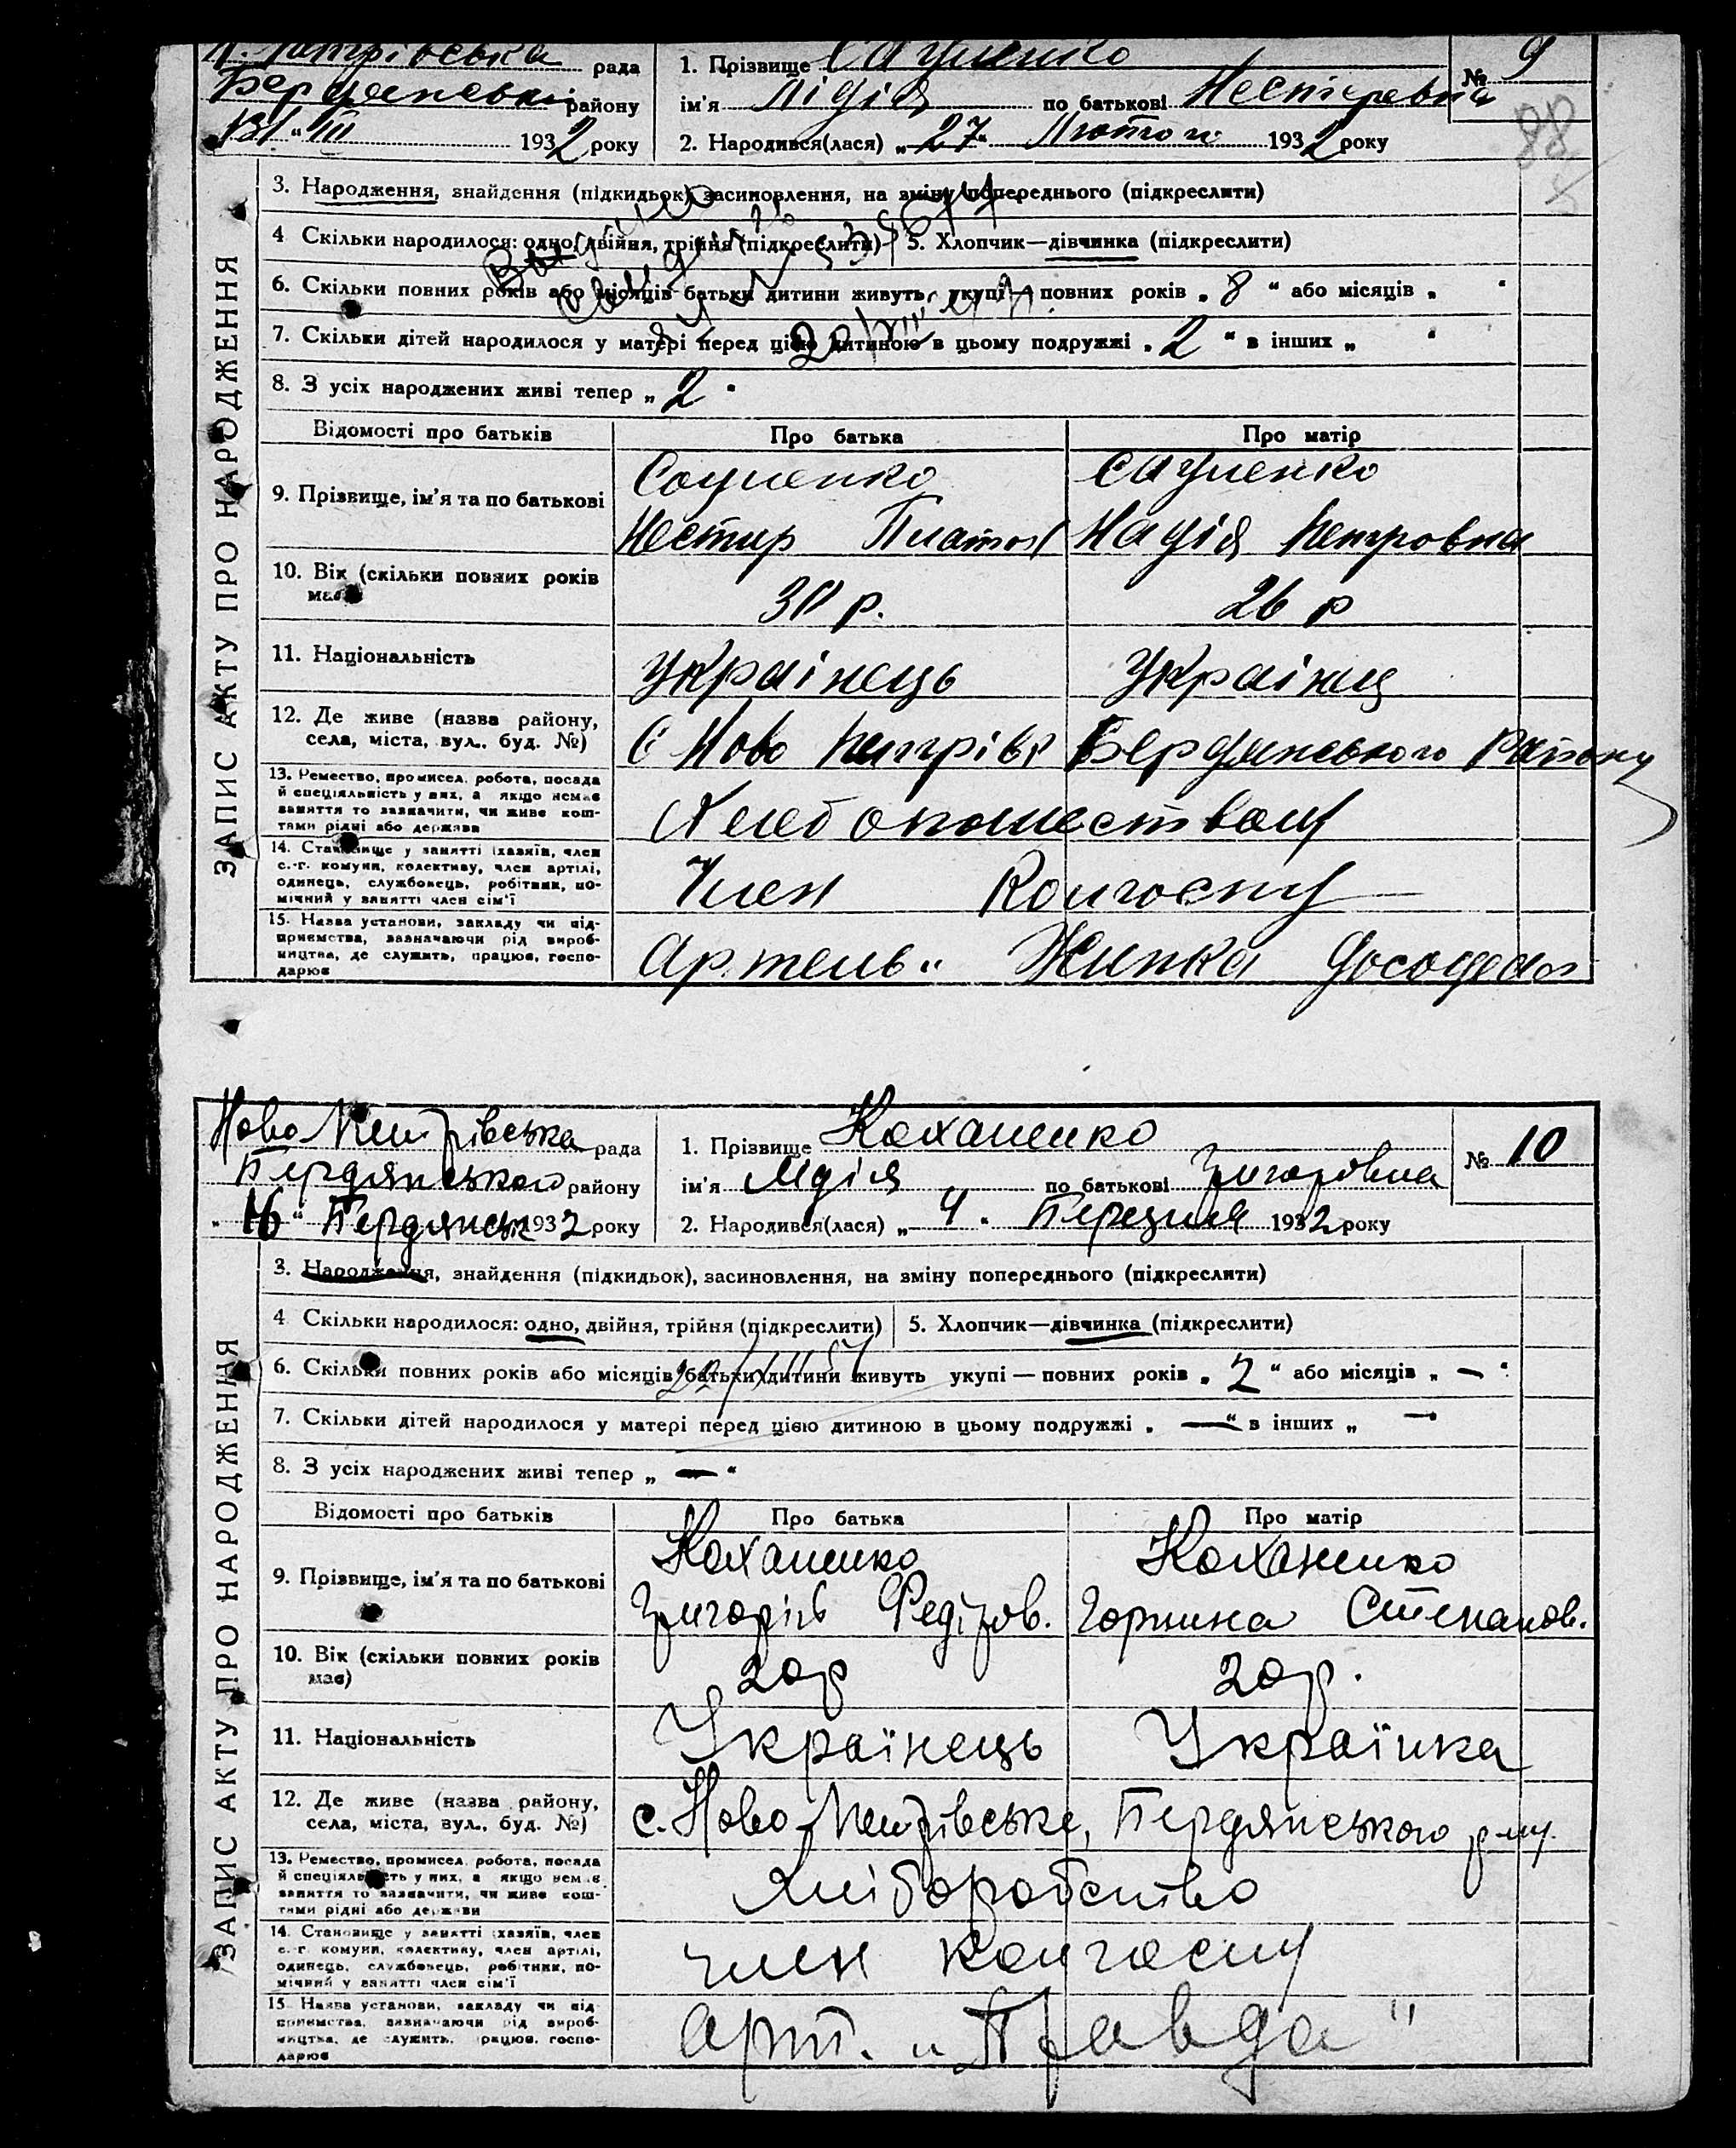 Н. Петрівська рада
Бердянський району
"31" III 1932 року
1. Прізвище Сауленко
№ 9
ім'я Лідія по батькові Нестеревна
88
2. Народився(лася) „27" Лютого 1932 року
ЗАПИС АКТУ ПРО НАРОДЖЕННЯ
3. Народження, знайдення (підкидьок), засиновлення, на зміну попереднього (підкреслити)
4 Скільки народилося: одно, двійня, трійня (підкреслити) 5. Хлопчик—дівчинка (підкреслити)
6. Скільки повних років або місяців батьки дитини живуть укупі — повних років „ 8 “ або місяців „ “
7. Скільки дітей народилося у матері перед цією дитиною в цьому подружжі „ 2 “ в інших „ “
8. З усіх народжених живі тепер „ 2 “
Відомості про батьків Про батька Про матір
9. Прізвище, ім'я та по батькові
Сауленко Сауленко
Нестир Платон Надія Петровна
10. Вік (скільки повних років має)
26 р
11. Національність
Українець Українц
12. Де живе (назва району,
села, міста, вул., буд. №)
С Ново Петрівк Бердянського Району
13. Ремество, промисел, робота, посада
й спеціяльність у них, а якщо немає
заняття то зазначити, чи живе кош-
тами рідні або держава
14. Становище у занятті (хазяїн, член
с.-г. комуни, колективу, член артілі,
одинець, службовець, робітник, по-
мічний у занятті член сім'ї
Член Колгоспу
15. Назва установи, закладу чи під-
приємства, зазначаючи рід вироб-
ництва, де служить, працює, госпо-
дарює
Артель „
Ново Петрівська рада
Бердянського району
„16“ Бердянськ 1932 року
1. Прізвище Коханенко
№ 10
ім'я Лідія по батькові Григоровна
2. Народився(лася) „ 4 " Березиля 1932 року
ЗАПИС АКТУ ПРО НАРОДЖЕННЯ
3. Народження, знайдення (підкидьок), засиновлення, на зміну попереднього (підкреслити)
4 Скільки народилося: одно, двійня, трійня (підкреслити) 5. Хлопчик—дівчинка (підкреслити)
6. Скільки повних років або місяців батьки дитини живуть укупі — повних років „ 2 “ або місяців „ — “
7. Скільки дітей народилося у матері перед цією дитиною в цьому подружжі „ — “ в інших „ — “
8. З усіх народжених живі тепер „ — “
Відомості про батьків Про батька Про матір
9. Прізвище, ім'я та по батькові
Коханенко Коханенко
Григорій Федіров. Горпина Степанов.
10. Вік (скільки повних років
має)
20р 20р.
11. Національність
Українець Українка
12. Де живе (назва району,
села, міста, вул., буд. №)
с. Ново-Петрівське, Бердянського р-ну.
13. Ремество, промисел, робота, посада
й спеціяльність у них, а якщо немає
заняття то зазначити, чи живе кош-
тами рідні або держави
Хліборобство
14. Становище у занятті (хазяїн, член
с.-г. комуни, колективу, член артілі,
одинець, службовець, робітник, по-
мічний у занятті член сім'ї
член колгоспу
15 Назва установи, закладу чи під-
приємства, зазначаючи рід вироб-
ництва, де служить, працює, госпо-
дарює
Арт. „Правда"